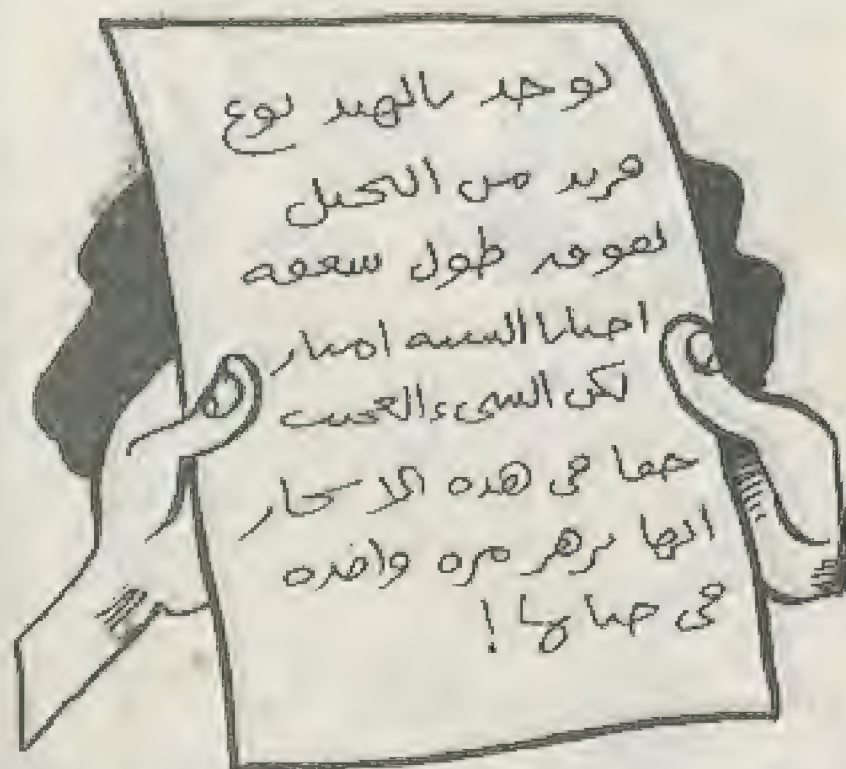 يوجد بالهند نوع
فريد من النخيل
طول سعفه
احيانا الستة امتار
لكن الشىء العجيب
حقا فى هذه الاشجار
انها تزهر مره واحده
فى حياتها !